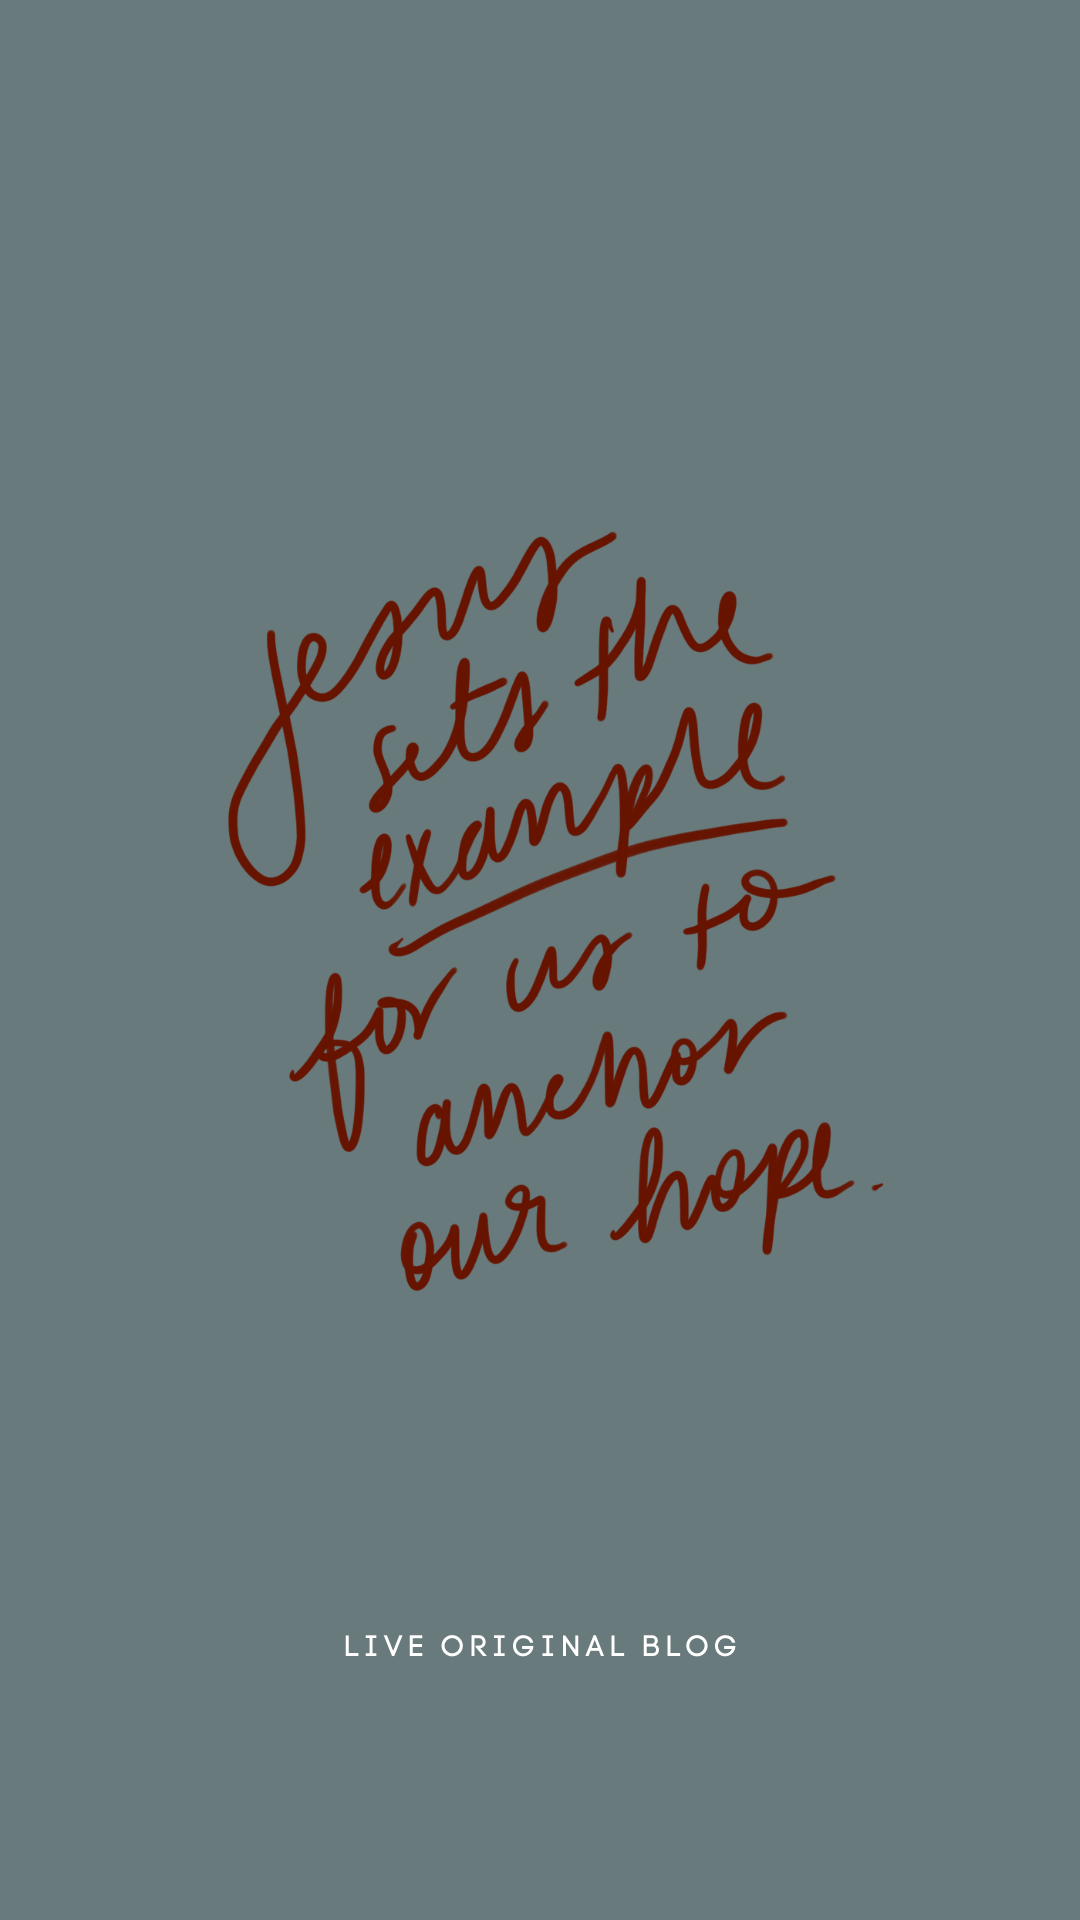 Jesus
sets the
example
for us to
anchor
our hope.
LIVE ORIGINAL BLOG